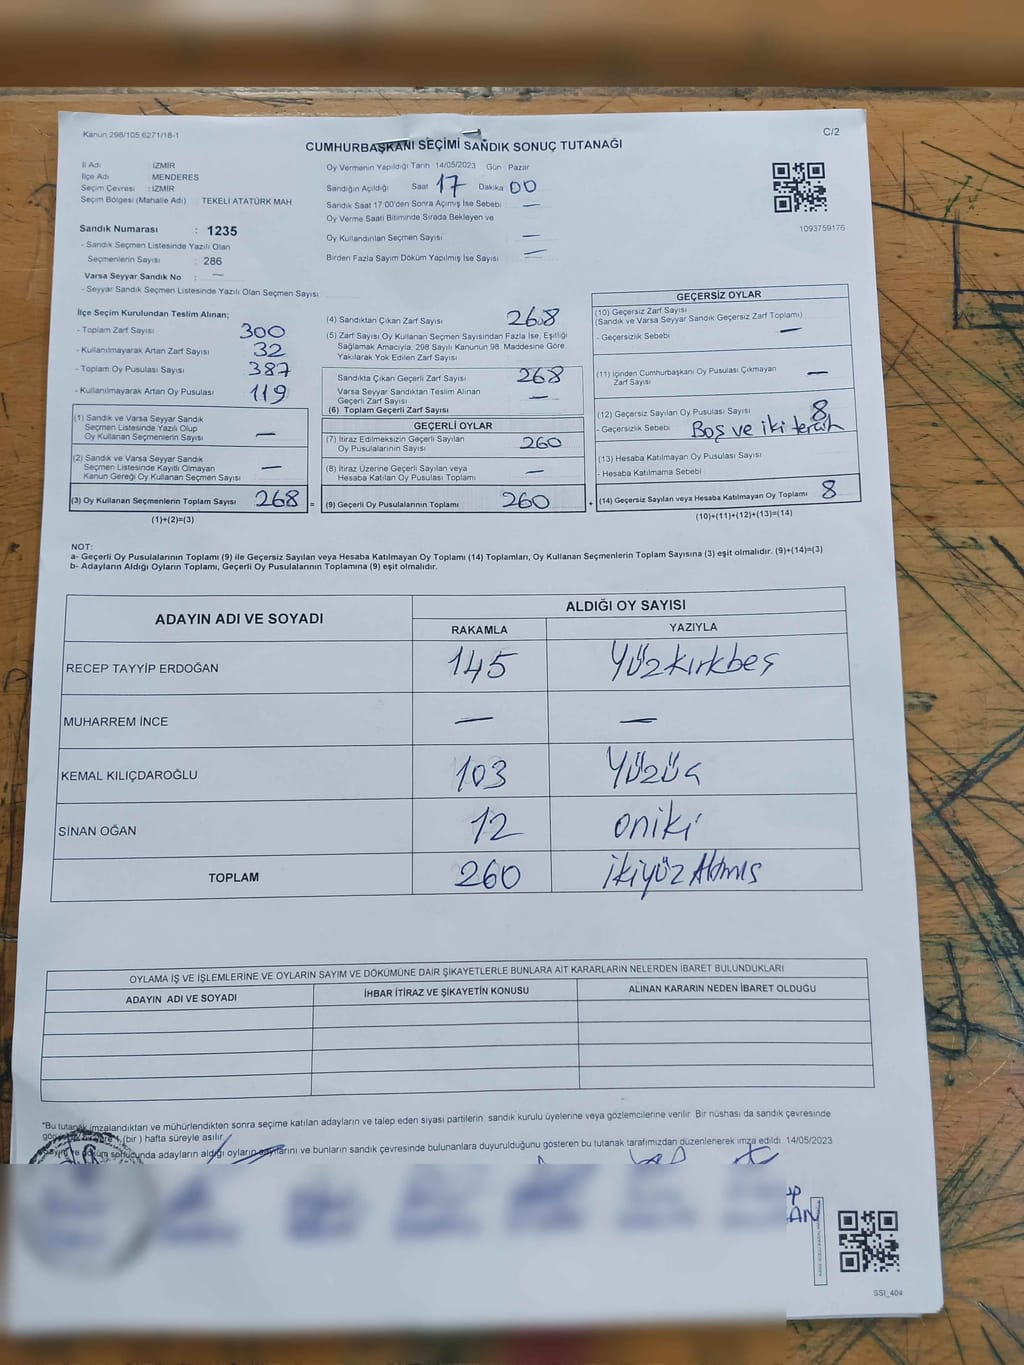 Kanun 298/105 6271/18-1
C/2
CUMHURBAŞKANI SEÇİMİ SANDIK SONUÇ TUTANAĞI
İl Adı : İZMİR
İlçe Adı : MENDERES
Seçim Çevresi : İZMİR
Seçim Bölgesi (Mahalle Adı) : TEKELİ ATATÜRK MAH.
Sandık Numarası : 1235
- Sandık Seçmen Listesinde Yazılı Olan
Seçmenlerin Sayısı : 286
Varsa Seyyar Sandık No : —
- Seyyar Sandık Seçmen Listesinde Yazılı Olan Seçmen Sayısı
Oy Vermenin Yapıldığı Tarih 14/05/2023 Gün Pazar
Sandığın Açıldığı Saat 17 Dakika 00
Sandık Saat 17.00'den Sonra Açımış İse Sebebi —
Oy Verme Saati Bitiminde Sırada Bekleyen ve
Oy Kullandırılan Seçmen Sayısı —
Birden Fazla Sayım Döküm Yapılmış İse Sayısı —
1093759176
İlçe Seçim Kurulundan Teslim Alınan;
- Toplam Zarf Sayısı 300
- Kullanılmayarak Artan Zarf Sayısı 32
- Toplam Oy Pusulası Sayısı 387
- Kullanılmayarak Artan Oy Pusulası 119
(1) Sandık ve Varsa Seyyar Sandık
Seçmen Listesinde Yazılı Olup
Oy Kullanan Seçmenlerin Sayısı —
(2) Sandık ve Varsa Seyyar Sandık
Seçmen Listesinde Kayıtlı Olmayan
Kanun Gereği Oy Kullanan Seçmen Sayısı —
(3) Oy Kullanan Seçmenlerin Toplam Sayısı 268 =
(1)+(2)=(3)
(4) Sandıktan Çıkan Zarf Sayısı 268
(5) Zarf Sayısı Oy Kullanan Seçmen Sayısından Fazla İse, Eşitliği
Sağlamak Amacıyla, 298 Sayılı Kanunun 98. Maddesine Göre
Yakılarak Yok Edilen Zarf Sayısı
Sandıkta Çıkan Geçerli Zarf Sayısı 268
Varsa Seyyar Sandıktan Teslim Alınan
Geçerli Zarf Sayısı —
(6) Toplam Geçerli Zarf Sayısı
GEÇERLİ OYLAR
(7) İtiraz Edilmeksizin Geçerli Sayılan
Oy Pusulalarının Sayısı 260
(8) İtiraz Üzerine Geçerli Sayılan veya
Hesaba Katılan Oy Pusulası Toplamı —
(9) Geçerli Oy Pusulalarının Toplamı 260 +
GEÇERSİZ OYLAR
(10) Geçersiz Zarf Sayısı
(Sandık ve Varsa Seyyar Sandık Geçersiz Zarf Toplamı)
- Geçersizlik Sebebi —
(11) İçinden Cumhurbaşkanı Oy Pusulası Çıkmayan
Zarf Sayısı —
(12) Geçersiz Sayılan Oy Pusulası Sayısı 8
- Geçersizlik Sebebi Boş ve iki tercih
(13) Hesaba Katılmayan Oy Pusulası Sayısı
- Hesaba Katılmama Sebebi
(14) Geçersiz Sayılan veya Hesaba Katılmayan Oy Toplamı 8
(10)+(11)+(12)+(13)=(14)
NOT:
a- Geçerli Oy Pusulalarının Toplamı (9) ile Geçersiz Sayılan veya Hesaba Katılmayan Oy Toplamı (14) Toplamları, Oy Kullanan Seçmenlerin Toplam Sayısına (3) eşit olmalıdır. (9)+(14)=(3)
b- Adayların Aldığı Oyların Toplamı, Geçerli Oy Pusulalarının Toplamına (9) eşit olmalıdır.
ADAYIN ADI VE SOYADI
ALDIĞI OY SAYISI
RAKAMLA YAZIYLA
RECEP TAYYİP ERDOĞAN 145 Yüzkırkbeş
MUHARREM İNCE — —
KEMAL KILIÇDAROĞLU 103 Yüzüç
SİNAN OĞAN 12 oniki
TOPLAM 260 ikiyüz Altmış
OYLAMA İŞ VE İŞLEMLERİNE VE OYLARIN SAYIM VE DÖKÜMÜNE DAİR ŞİKAYETLERLE BUNLARA AİT KARARLARIN NELERDEN İBARET BULUNDUKLARI
ADAYIN ADI VE SOYADI İHBAR İTİRAZ VE ŞİKAYETİN KONUSU ALINAN KARARIN NEDEN İBARET OLDUĞU
*Bu tutanak imzalandıktan ve mühürlendikten sonra seçime katılan adayların ve talep eden siyasi partilerin sandık kurulu üyelerine veya gözlemcilerine verilir. Bir nüshası da sandık çevresinde
(bir) hafta süreyle asılır.
sonucunda adayların aldığı oyların sayılarını ve bunların sandık çevresinde bulunanlara duyurulduğunu gösteren bu tutanak tarafımızdan düzenlenerek imza edildi. 14/05/2023
SSI_404